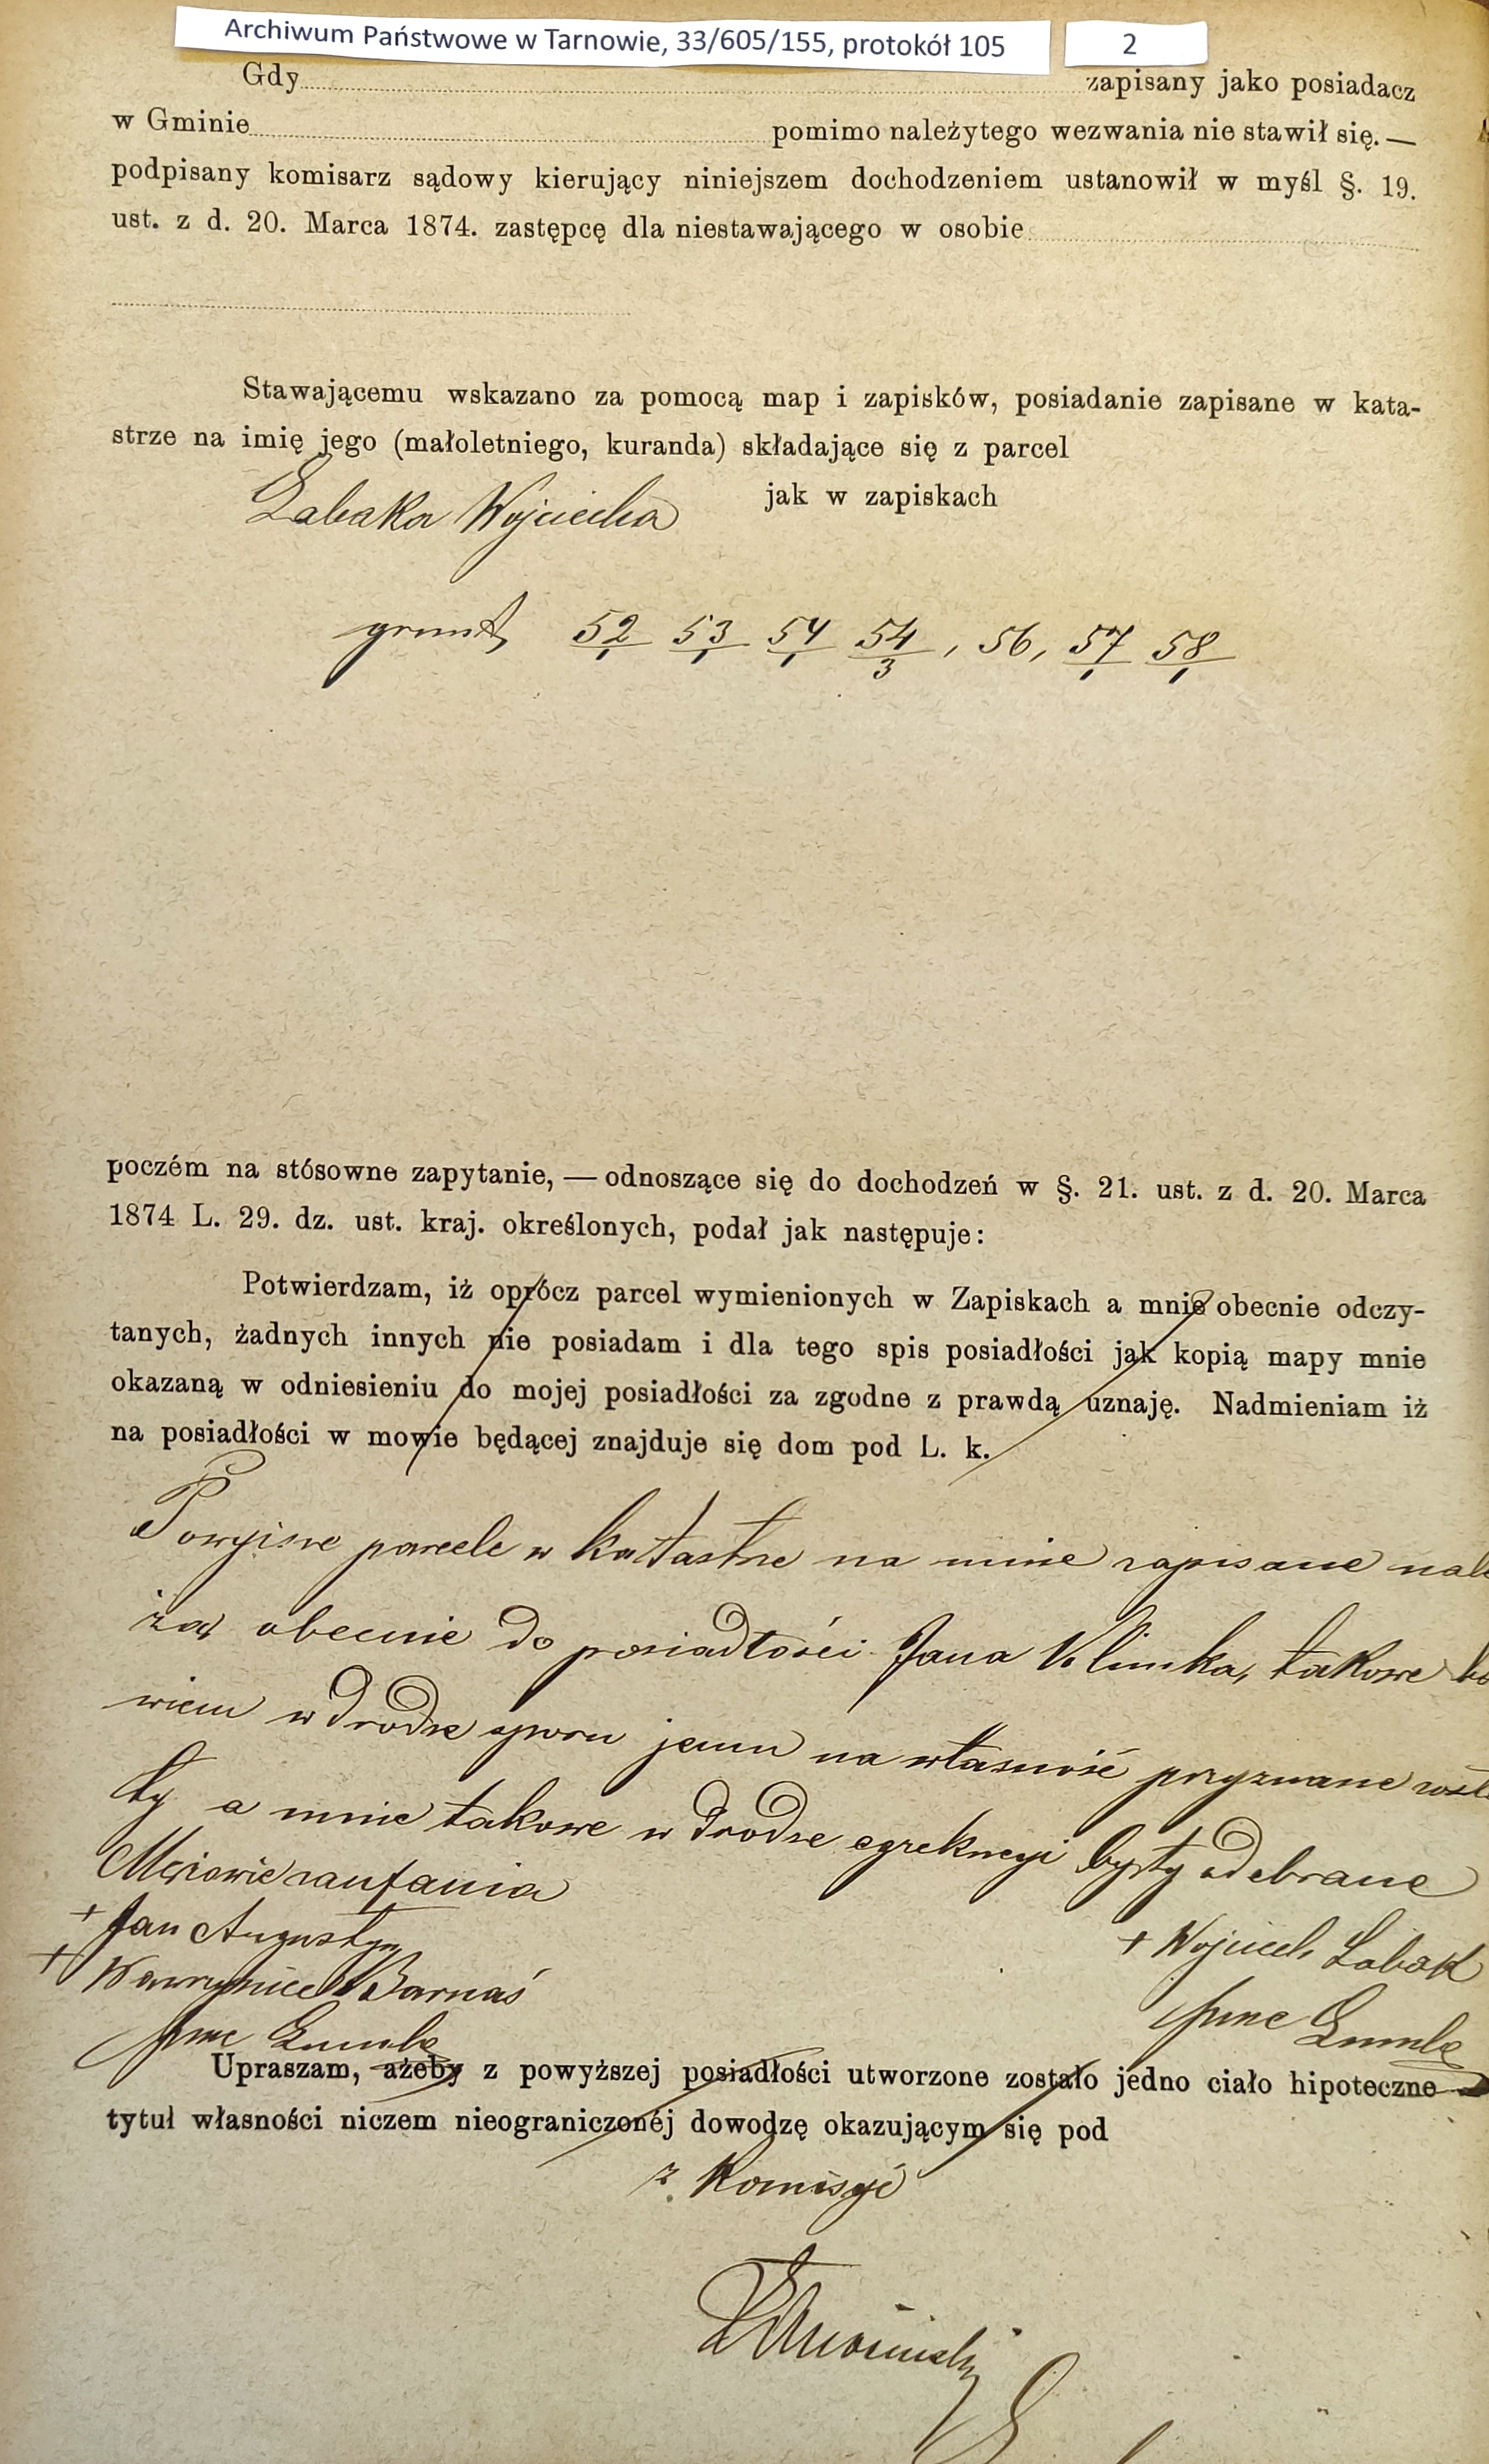 Archiwum Państwowe w Tarnowie, 33/605/155, protokół 105 2
Gdy zapisany jako posiadacz
w Gminie pomimo należytego wezwania nie stawił się. —
podpisany komisarz sądowy kierujący niniejszem dochodzeniem ustanowił w myśl §. 19.
ust. z d. 20. Marca 1874. zastępcę dla niestawającego w osobie
Stawającemu wskazano za pomocą map i zapisków, posiadanie zapisane w kata-
strze na imię jego (małoletniego, kuranda) składające się z parcel
Labaka Wojciecha jak w zapiskach
grunt, 52/1 53/1 54/1 54/3, 56, 57/1 58/1
poczém na stósowne zapytanie, — odnoszące się do dochodzeń w §. 21. ust. z d. 20. Marca
1874 L. 29. dz. ust. kraj. określonych, podał jak następuje:
Potwierdzam, iż oprócz parcel wymienionych w Zapiskach a mnie obecnie odczy-
tanych, żadnych innych nie posiadam i dla tego spis posiadłości jak kopią mapy mnie
okazaną w odniesieniu do mojej posiadłości za zgodne z prawdą uznaję. Nadmieniam iż
na posiadłości w mowie będącej znajduje się dom pod L. k.
Powyższe parcele w katastrze na mnie zapisane nale
żą obecnie do posiadłości Jana Klimka, takowe bo
wiem w drodze sporu jemu na własność przyznane zosta
ły a mnie takowe w drodze egzekucyi były odebrane
Mężowie zaufania
+ Jan Augustyn
+ Wojciech Labak
+ Wawrzyniec Barnaś
Upraszam, ażeby z powyższej posiadłości utworzone zostało jedno ciało hipoteczne
tytuł własności niczem nieograniczonéj dowodzę okazującym się pod
z Komisyi